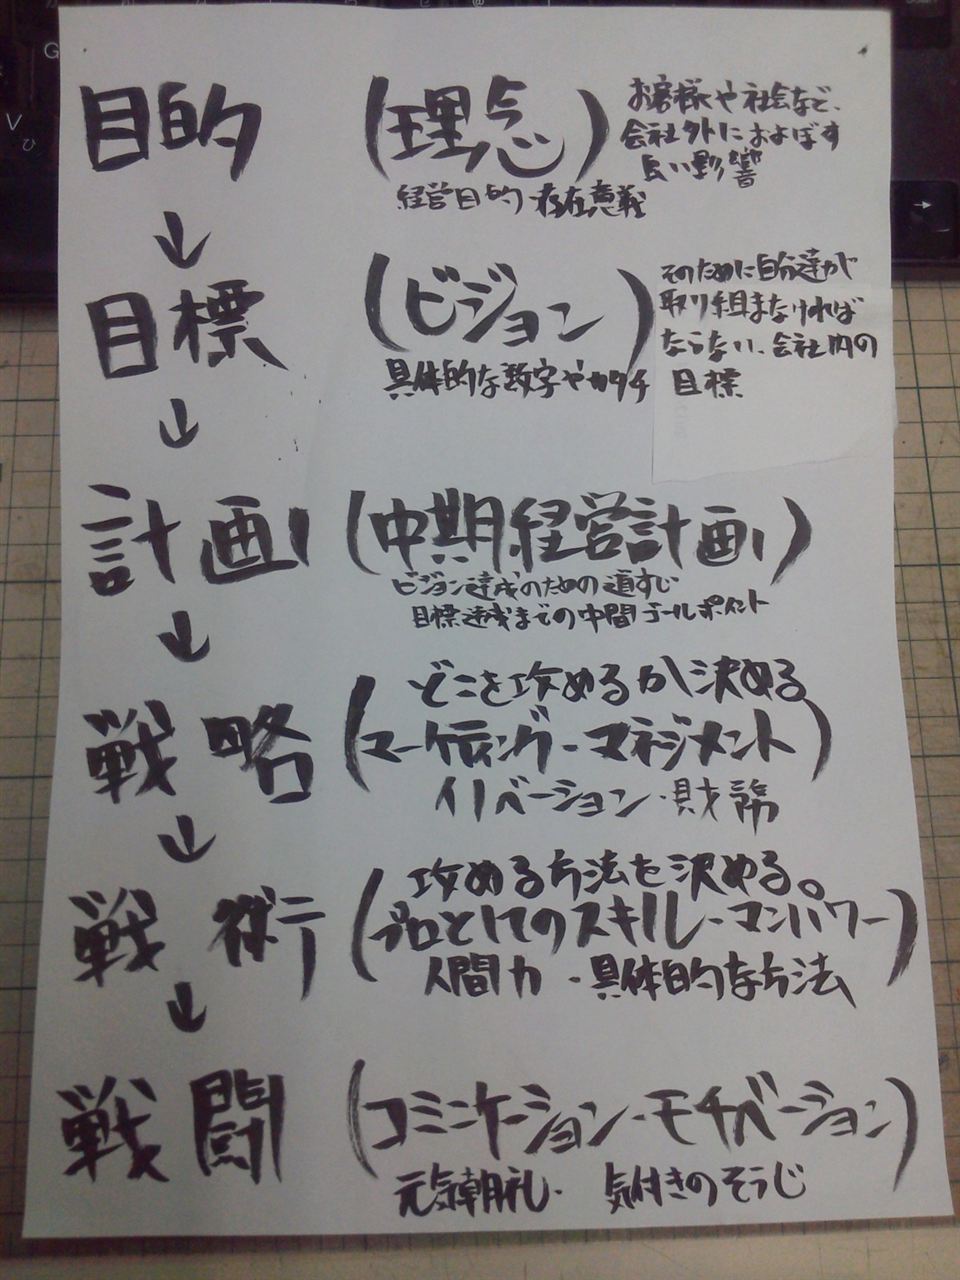 目的
(理念)
お客様や社会など、
会社外におよぼす
良い影響
経営目的・存在意義
↓
目標
(ビジョン)
そのために自分達が
取り組まなければ
ならない、会社内の
目標
具体的な数字やカタチ
↓
計画
(中期経営計画)
ビジョン達成のための道すじ
目標達成までの中間ゴールポイント
↓
どこを攻めるか決める
戦略
(マーケティング・マネジメント)
イノベーション・財務
↓
攻める方法を決める。
戦術
(プロとしてのスキル・マンパワー)
人間力・具体的な方法
↓
戦闘
(コミニケーション・モチベーション)
元気朝礼・気付きのそうじ